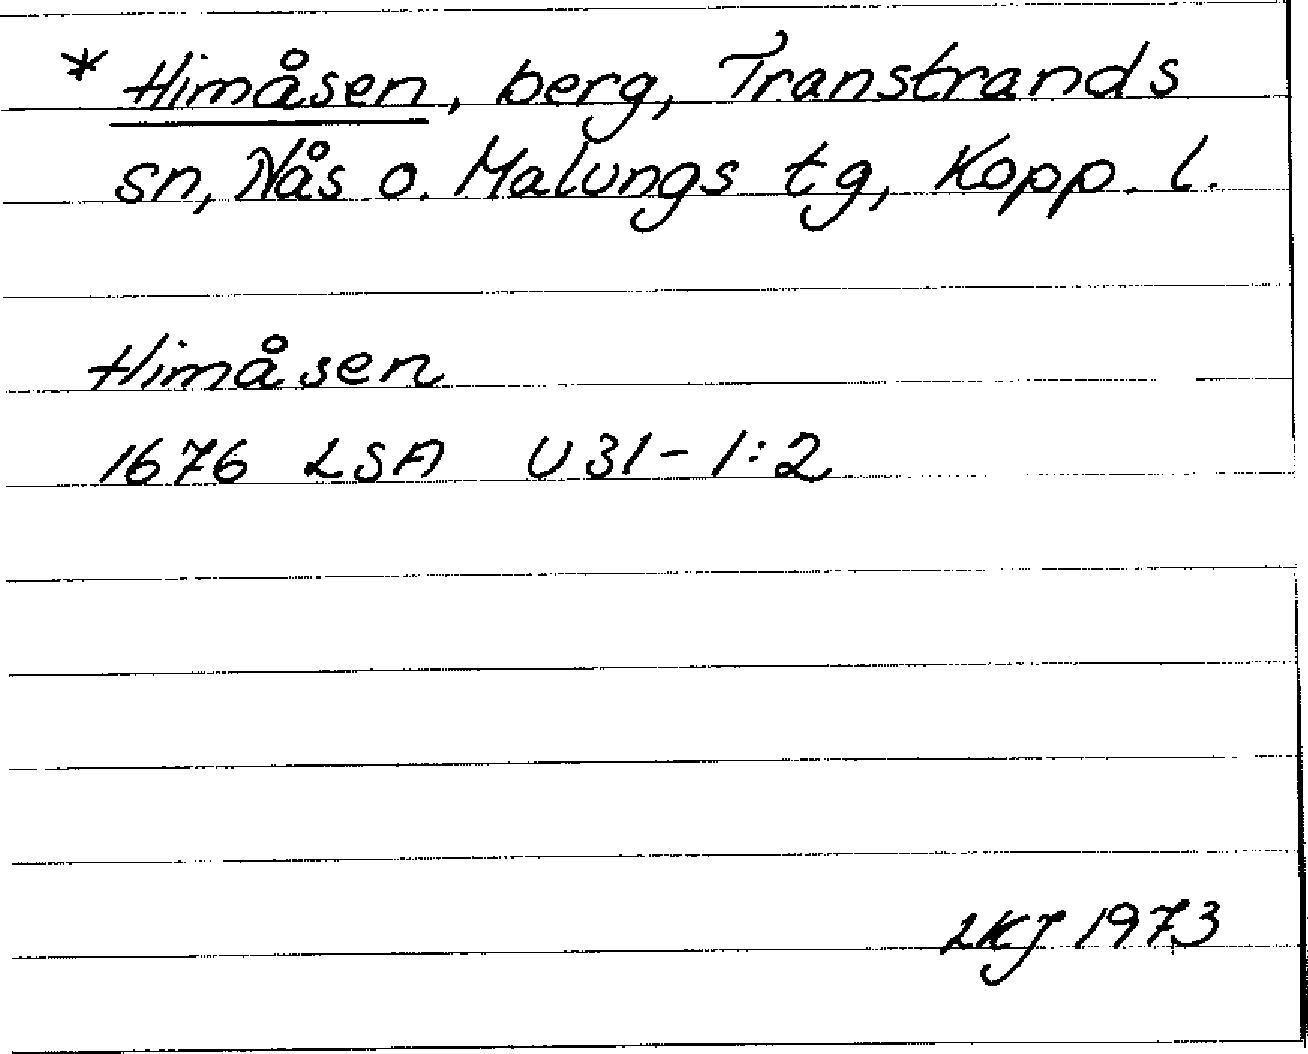 * Himåsen, berg, Transtrands
sn, Nås o. Malungs tg, Kopp. l.
Himåsen
1676 LSA U31-1:2
LKJ 1973